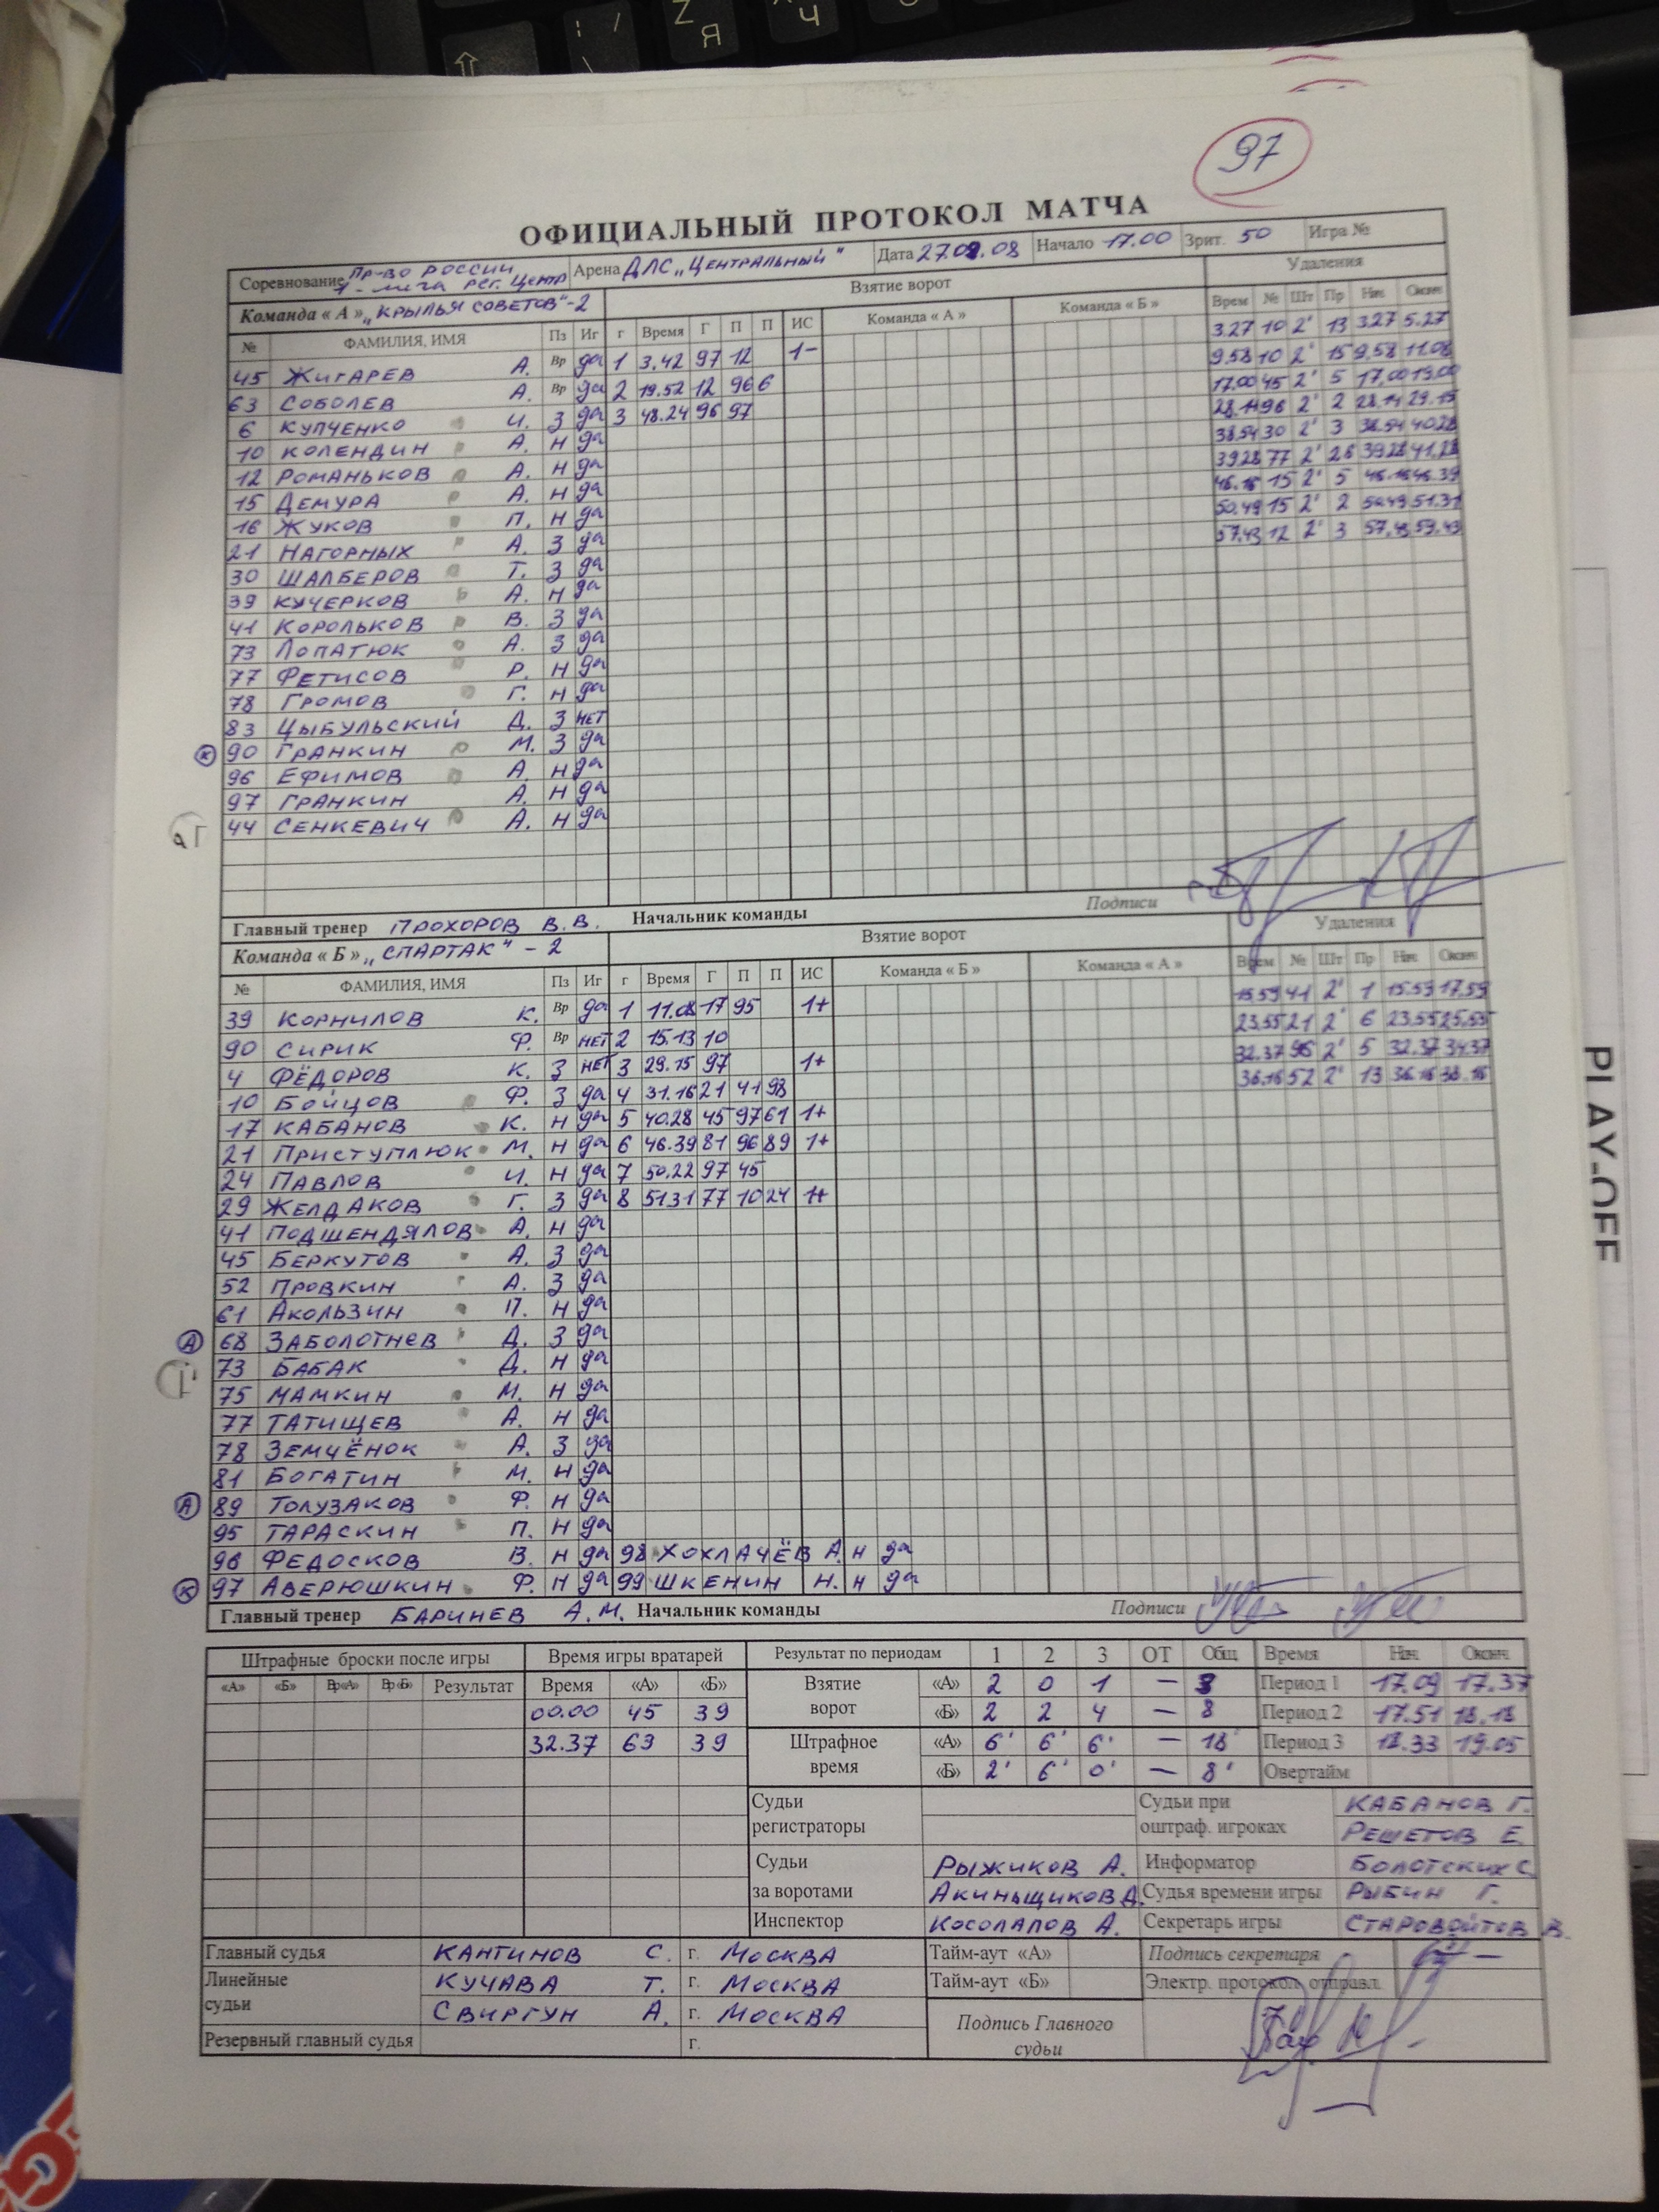 97
ОФИЦИАЛЬНЫЙ ПРОТОКОЛ МАТЧА
Соревнование Пр-во России 1-лига рег. Центр Арена ДЛС „Центральный" Дата 27.09.08 Начало 17.00 Зрит. 50 Игра №
Команда « А » „Крылья Советов"-2 Взятие ворот Удаления
№ ФАМИЛИЯ, ИМЯ Пз Иг г Время Г П П ИС Команда « А » Команда « Б » Врем № Шт Пр Нач Оконч
45 Жигарев А. Вр да 1 3.42 97 12 1- 3.27 10 2' 13 3.27 5.27
63 Соболев А. Вр да 2 19.52 12 96 6 9.58 10 2' 15 9.58 11.08
6 Купченко И. З да 3 48.24 96 97 17.00 45 2' 5 17.00 19.00
10 Колендин А. Н да 28.14 96 2' 2 28.14 29.15
12 Романьков А. Н да 38.54 30 2' 3 38.54 40.28
15 Демура А. Н да 39.28 77 2' 28 39.28 41.28
16 Жуков П. Н да 46.16 15 2' 5 46.16 46.39
21 Нагорных А. З да 50.49 15 2' 2 50.49 51.31
30 Шалберов Т. З да 57.43 12 2' 3 57.43 59.43
39 Кучерков А. Н да
41 Корольков В. З да
73 Лопатюк А. З да
77 Фетисов Р. Н да
78 Громов Г. Н да
83 Цыбульский Д. З нет
К 90 Гранкин М. З да
96 Ефимов А. Н да
97 Гранкин А. Н да
44 Сенкевич А. Н да
Главный тренер Прохоров В.В. Начальник команды Подписи
Команда « Б » „Спартак" - 2 Взятие ворот Удаления
№ ФАМИЛИЯ, ИМЯ Пз Иг г Время Г П П ИС Команда « Б » Команда « А » Врем № Шт Пр Нач Оконч
39 Корнилов К. Вр да 1 11.08 17 95 1+ 15.59 41 2' 1 15.59 17.59
90 Сирик Ф. Вр нет 2 15.13 10 23.55 21 2' 6 23.55 25.55
4 Фёдоров К. З нет 3 29.15 97 1+ 32.37 96 2' 5 32.37 34.37
10 Бойцов Ф. З да 4 31.16 21 41 98 36.16 52 2' 13 36.16 38.16
17 Кабанов К. Н да 5 40.28 45 97 61 1+
21 Приступлюк М. Н да 6 46.39 81 96 89 1+
24 Павлов И. Н да 7 50.22 97 45
29 Желдаков Г. З да 8 51.31 77 10 24 1+
41 Подшендялов А. Н да
45 Беркутов А. З да
52 Провкин А. З да
61 Акользин П. Н да
А 68 Заболотнев Д. З да
73 Бабак Д. Н да
75 Мамкин М. Н да
77 Татищев А. Н да
78 Земчёнок А. З да
81 Богатин М. Н да
А 89 Толузаков Ф. Н да
95 Тараскин П. Н да
96 Федосков В. Н да 98 Хохлачёв А. Н да
К 97 Аверюшкин Ф. Н да 99 Шкенин Н. Н да
Главный тренер Баринев А.М. Начальник команды Подписи
Штрафные броски после игры Время игры вратарей Результат по периодам 1 2 3 ОТ Общ Время Нач Оконч
«А» «Б» Вр«А» Вр«Б» Результат Время «А» «Б» Взятие ворот «А» 2 0 1 — 3 Период 1 17.09 17.37
00.00 45 39 «Б» 2 2 4 — 8 Период 2 17.51 18.18
32.37 63 39 Штрафное время «А» 6' 6' 6' — 18' Период 3 18.33 19.05
«Б» 2' 6' 0' — 8' Овертайм
Судьи регистраторы Судьи при оштраф. игроках Кабанов Г.
Решетов Е.
Судьи за воротами Рыжиков А. Информатор Болотских С.
Акиньщиков Д. Судья времени игры Рыбин Г.
Инспектор Косолапов А. Секретарь игры Старовойтов В.
Главный судья Кантинов С. г. Москва Тайм-аут «А» Подпись секретаря
Линейные судьи Кучава Т. г. Москва Тайм-аут «Б» Электр. протокол отправл.
Свиргун А. г. Москва Подпись Главного судьи
Резервный главный судья г.
PLAY-OFF